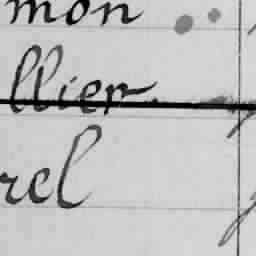 mon
llier
rel